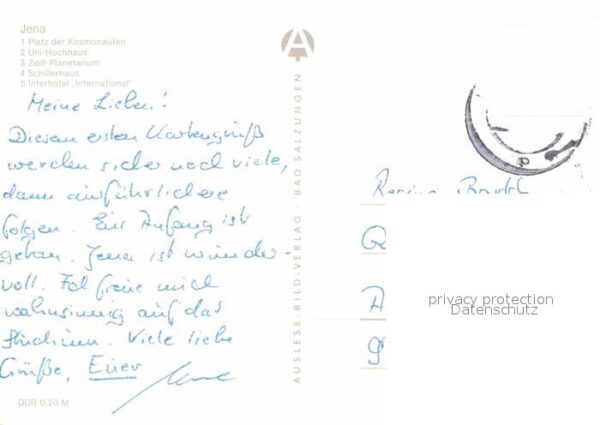 Jena
1 Platz der Kosmonauten
2 Uni-Hochhaus
3 Zeiß-Planetarium
4 Schillerhaus
5 Interhotel „International"
Meine Lieben!
Diesem ersten Kartengruß
werden sicher noch viele,
dann ausführlichere
folgen. Ein Anfang ist
getan. Jena ist wunder-
voll. Ich freue mich
wahnsinnig auf das
Studium. Viele liebe
Grüße, Euer
DDR 0,20 M
A
AUSLESE-BILD-VERLAG · BAD SALZUNGEN
P
privacy protection
Datenschutz